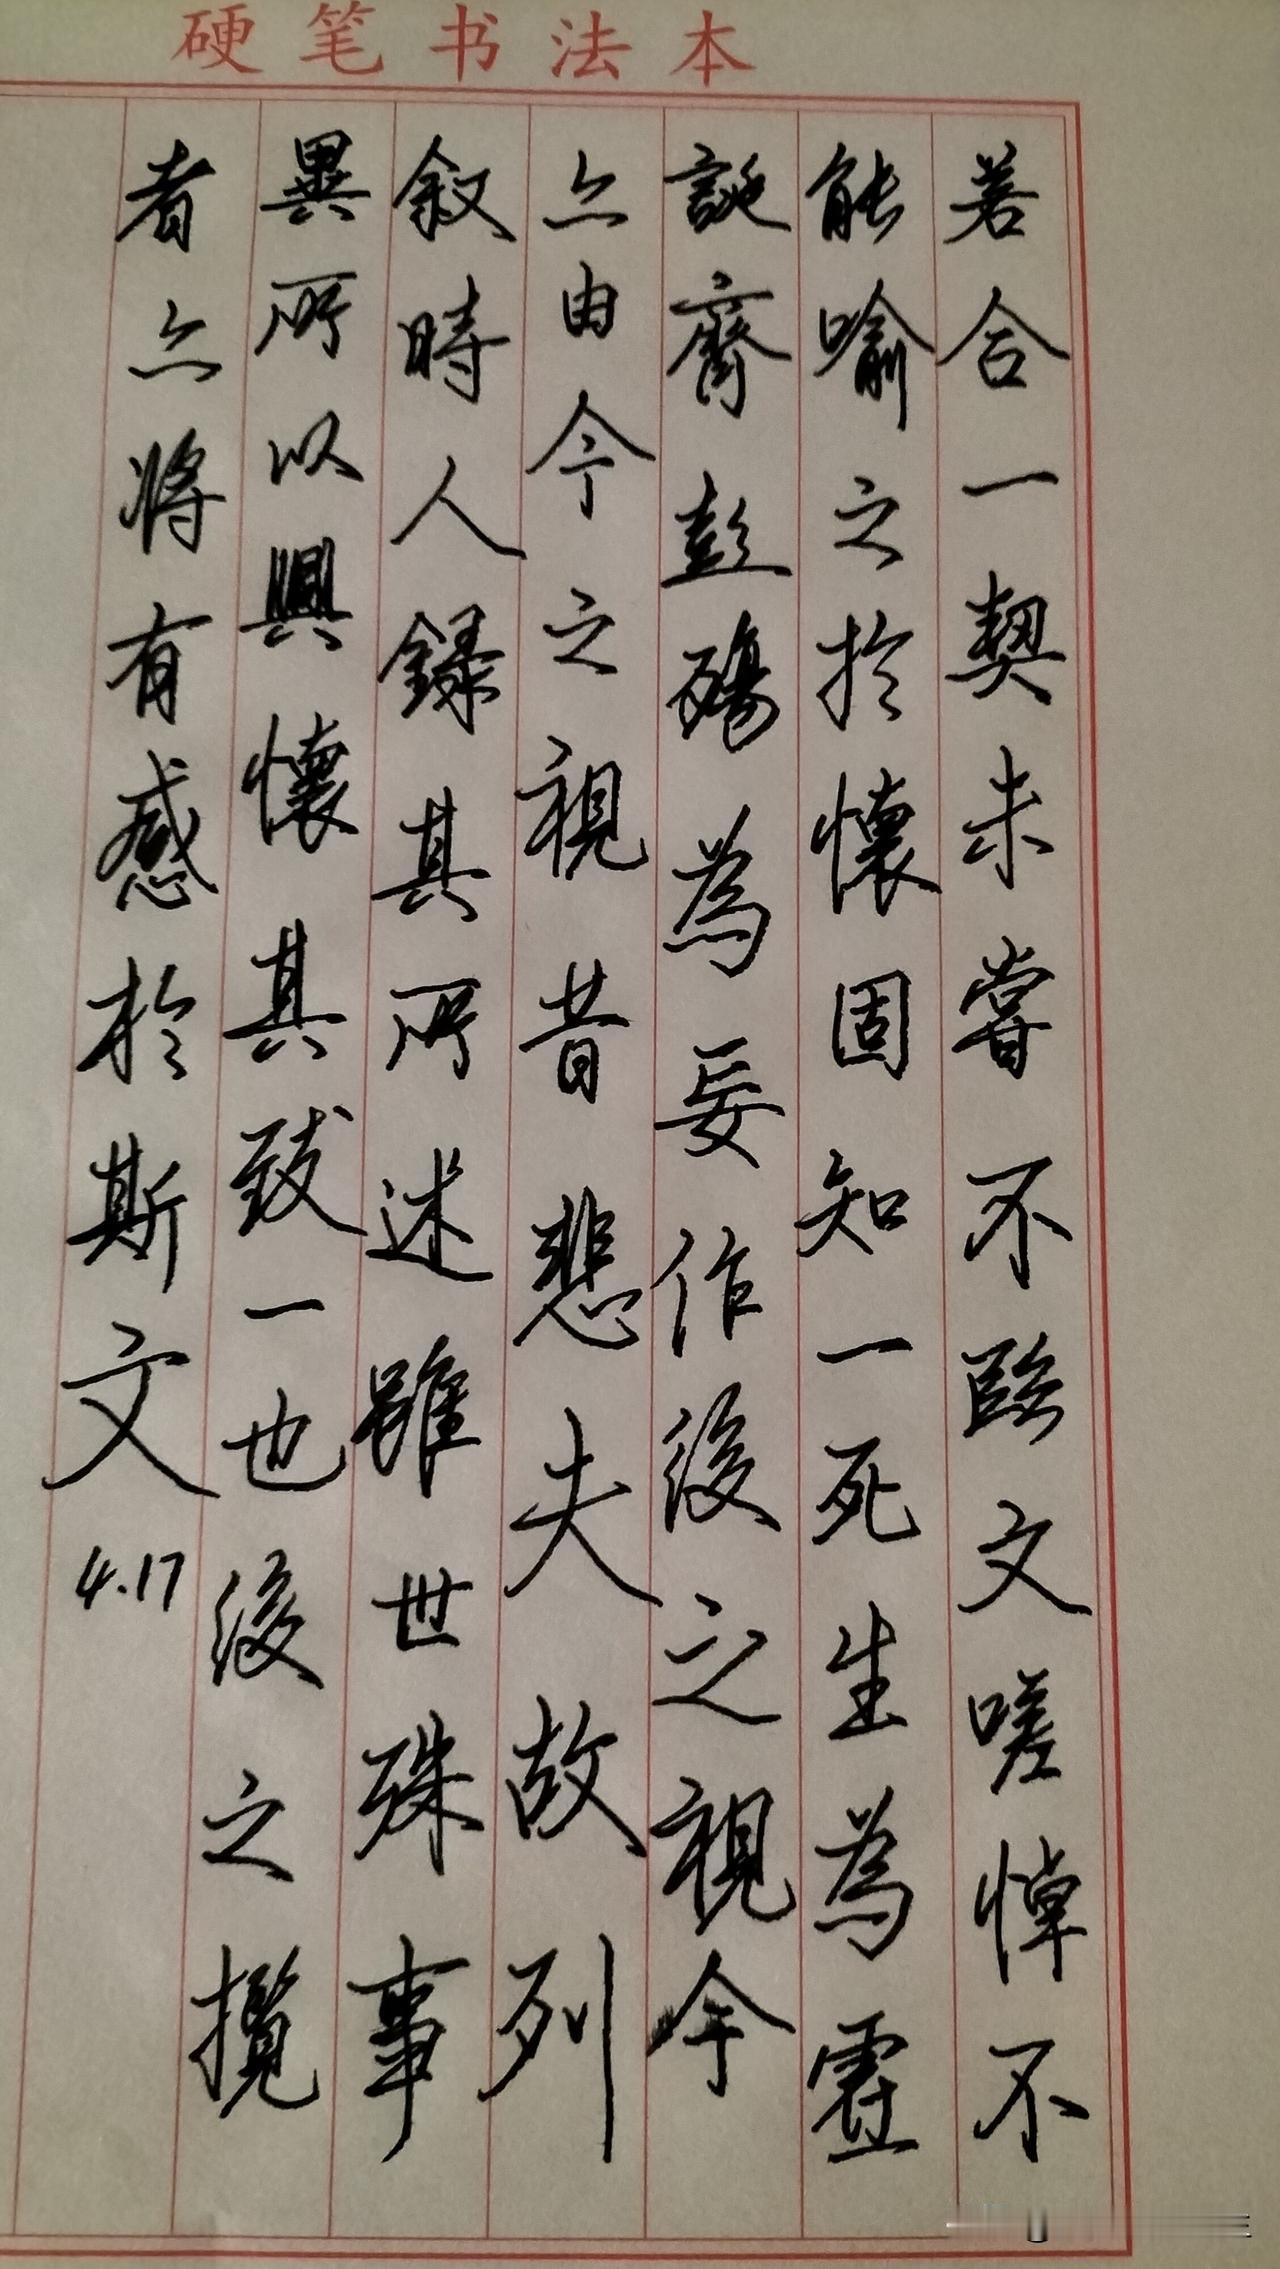 硬笔书法本
若合一契未嘗不臨文嗟悼不
能喻之於懷固知一死生為虛
誕齊彭殤為妄作後之視今
亦由今之視昔悲夫故列
敘時人錄其所述雖世殊事
異所以興懷其致一也後之攬
者亦將有感於斯文
4.17